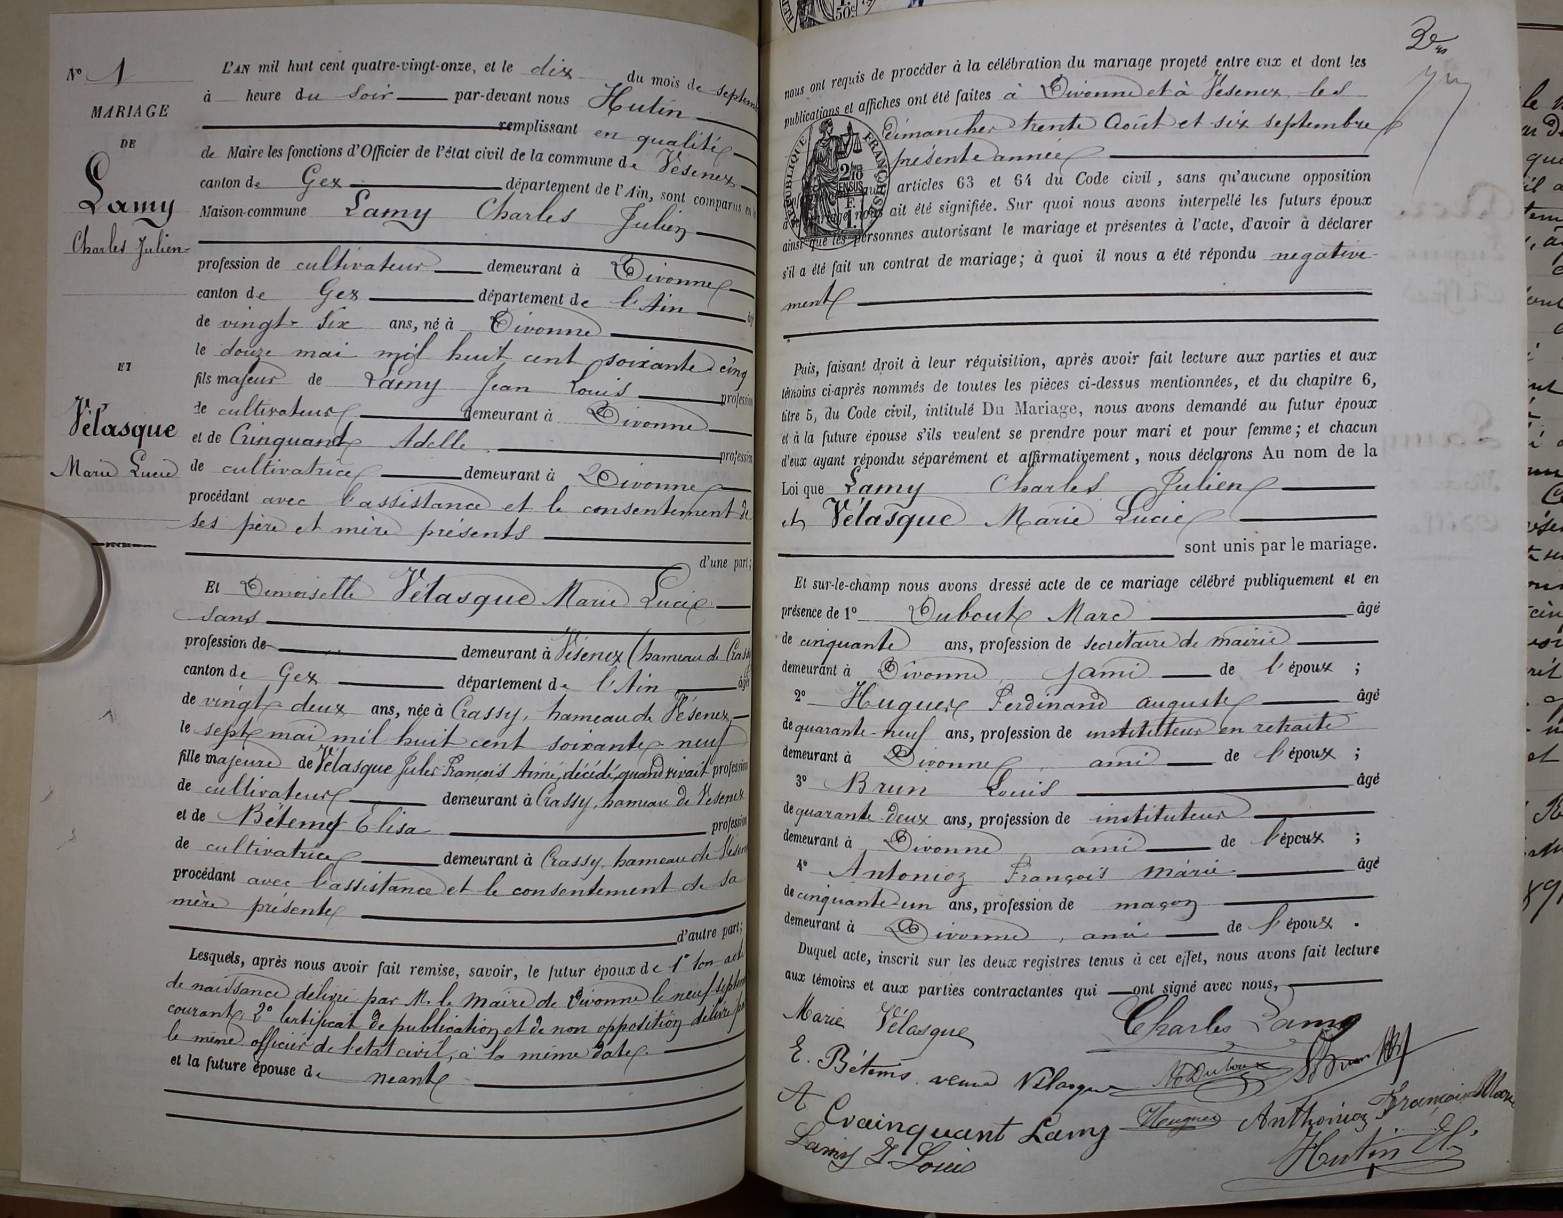 N° 1
MARIAGE
DE
Lamy
Charles Julien
ET
Vélasque
Marie Lucie
L'AN mil huit cent quatre-vingt-onze, et le dix du mois de septem
à heure du soir par-devant nous Hutin
remplissant en qualité
de Maire les fonctions d'Officier de l'état civil de la commune de Vésenex
canton de Gex département de l'Ain, sont comparus en la
Maison-commune Lamy Charles Julien
profession de cultivateur demeurant à Divonne
canton de Gex département de l'Ain âgé
de vingt-six ans, né à Divonne
le douze mai mil huit cent soixante cinq
fils majeur de Lamy Jean Louis profession
de cultivateur demeurant à Divonne
et de Crinquant Adelle profession
de cultivatrice demeurant à Divonne
procédant avec l'assistance et le consentement de
ses père et mère présents
d'une part;
Et Demoiselle Vélasque Marie Lucie
sans
profession de demeurant à Vésenex (hameau de Crassy
canton de Gex département de l'Ain âgé
de vingt-deux ans, née à Crassy, hameau de Vésenex
le sept mai mil huit cent soixante-neuf
fille majeure de Vélasque Jules François Aimé, décédé, quand vivait profession
de cultivateur demeurant à Crassy, hameau de Vésenex
et de Bétems Elisa profession
de cultivatrice demeurant à Crassy, hameau de Vésen
procédant avec l'assistance et le consentement de sa
mère présente
d'autre part;
Lesquels, après nous avoir fait remise, savoir, le futur époux de 1° son acte
de naissance délivré par M. le Maire de Divonne le neuf septem
courant, 2° certificat de publication et de non opposition délivré par
le même officier de l'état civil, à la même date
et la future épouse de néant
2e
nous ont requis de procéder à la célébration du mariage projeté entre eux et dont les
publications et affiches ont été faites à Divonne et à Vésenex les
dimanches trente Août et six septembre
présente année
RÉPUBLIQUE FRANÇAISE
articles 63 et 64 du Code civil, sans qu'aucune opposition
ait été signifiée. Sur quoi nous avons interpellé les futurs époux
ainsi que les personnes autorisant le mariage et présentes à l'acte, d'avoir à déclarer
s'il a été fait un contrat de mariage; à quoi il nous a été répondu négative-
ment
Puis, faisant droit à leur réquisition, après avoir fait lecture aux parties et aux
témoins ci-après nommés de toutes les pièces ci-dessus mentionnées, et du chapitre 6,
titre 5, du Code civil, intitulé Du Mariage, nous avons demandé au futur époux
et à la future épouse s'ils veulent se prendre pour mari et pour femme; et chacun
d'eux ayant répondu séparément et affirmativement, nous déclarons Au nom de la
Loi que Lamy Charles Julien
et Vélasque Marie Lucie
sont unis par le mariage.
Et sur-le-champ nous avons dressé acte de ce mariage célébré publiquement et en
présence de 1° Duboux Marc âgé
de cinquante ans, profession de secrétaire de mairie
demeurant à Divonne ami de l'époux ;
2° Hugues Ferdinand auguste âgé
de quarante-neuf ans, profession de instituteur en retraite
demeurant à Divonne, ami de l'époux ;
3° Brun Louis âgé
de quarante deux ans, profession de instituteur
demeurant à Divonne, ami de l'époux ;
4° Antonioz François Marie âgé
de cinquante un ans, profession de maçon
demeurant à Divonne, ami de l'époux.
Duquel acte, inscrit sur les deux registres tenus à cet effet, nous avons fait lecture
aux témoins et aux parties contractantes qui ont signé avec nous,
Marie Vélasque Charles Lamy
E. Bétems veuve Vélasque M Duboux
A Crainquant Lamy Hugues Anthonioz François Marie
Lamy J Louis Hutin